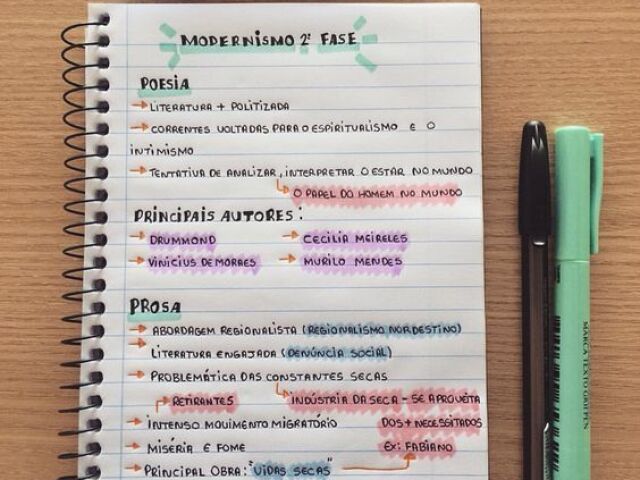 MODERNISMO 2ª FASE
POESIA
→ LITERATURA + POLITIZADA
→ CORRENTES VOLTADAS PARA O ESPIRITUALISMO E O
INTIMISMO
→ TENTATIVA DE ANALIZAR, INTERPRETAR O ESTAR NO MUNDO
↳ O PAPEL DO HOMEM NO MUNDO
PRINCIPAIS AUTORES:
→ DRUMMOND → CECILIA MEIRELES
→ VINICIUS DE MORAES → MURILO MENDES
PROSA
→ ABORDAGEM REGIONALISTA (REGIONALISMO NORDESTINO)
→ LITERATURA ENGAJADA (DENÚNCIA SOCIAL)
→ PROBLEMÁTICA DAS CONSTANTES SECAS
→ RETIRANTES ↳ INDÚSTRIA DA SECA - SE APROVEITA
→ INTENSO MOVIMENTO MIGRATÓRIO DOS + NECESSITADOS
→ MISÉRIA E FOME EX: FABIANO
→ PRINCIPAL OBRA: "VIDAS SECAS"
MARCA TEXTO GRIFPEN